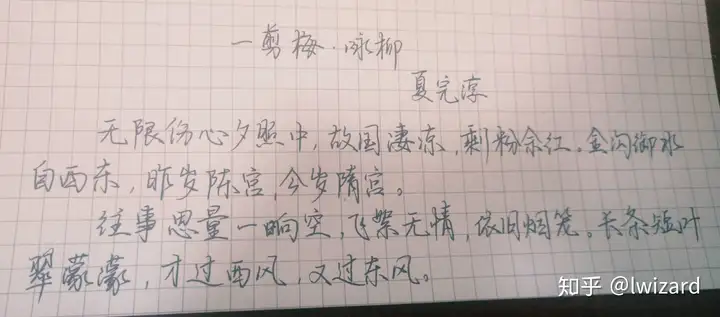 一剪梅·咏柳
夏完淳
无限伤心夕照中，故国凄凉，剩粉余红。金闪御水
自西东，昨岁陈宫，今岁隋宫。
往事思量一晌空，飞絮无情，依旧烟笼。长条短叶
翠蒙蒙，才过西风，又过东风。
知乎 @lwizard